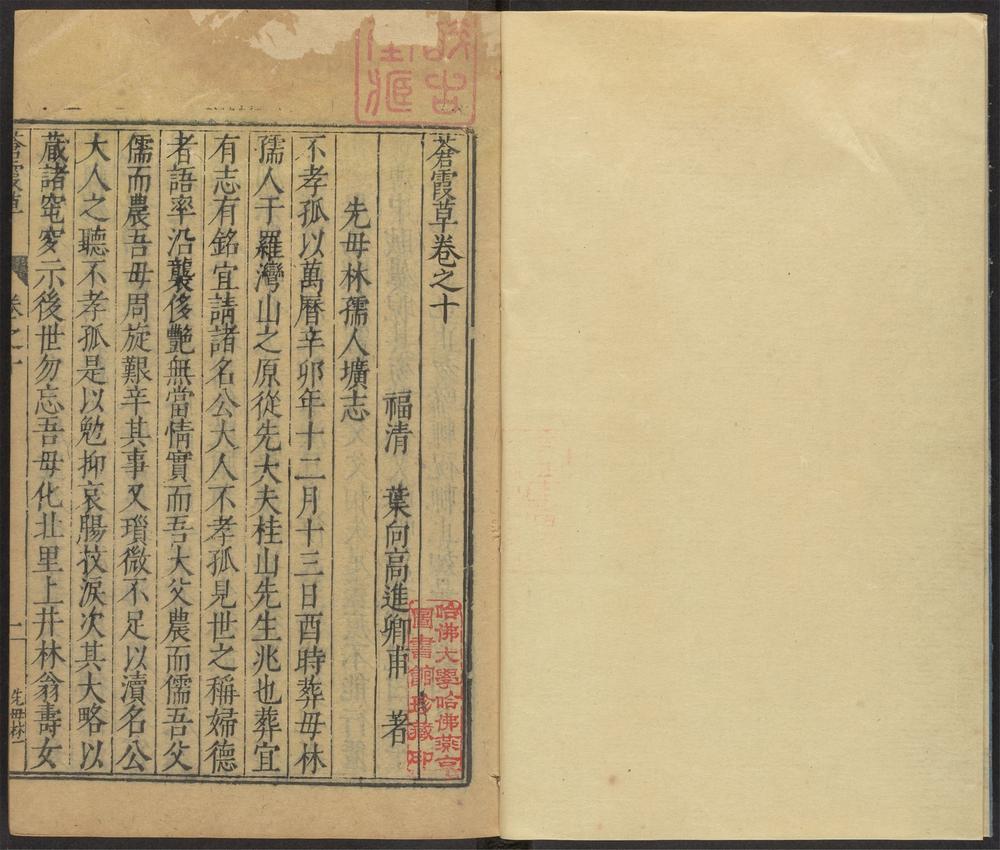 蒼霞草卷之十
福清 葉向高進卿甫 著
先母林孺人壙志
不孝孤以萬曆辛卯年十二月十三日酉時葬母林
孺人于羅灣山之原從先大夫桂山先生兆也葬宜
有志有銘宜請諸名公大人不孝孤見世之稱婦德
者語率沿襲侈艷無當情實而吾大父農而儒吾父
儒而農吾母周旋艱辛其事又瑣微不足以瀆名公
大人之聽不孝孤是以勉抑哀腸抆淚次其大略以
蕆諸窀穸示後世勿忘吾母化北里上井林翁壽女
蒼霞草
卷之十
一
先母林一
哈佛大學哈佛燕京
圖書館珍藏印